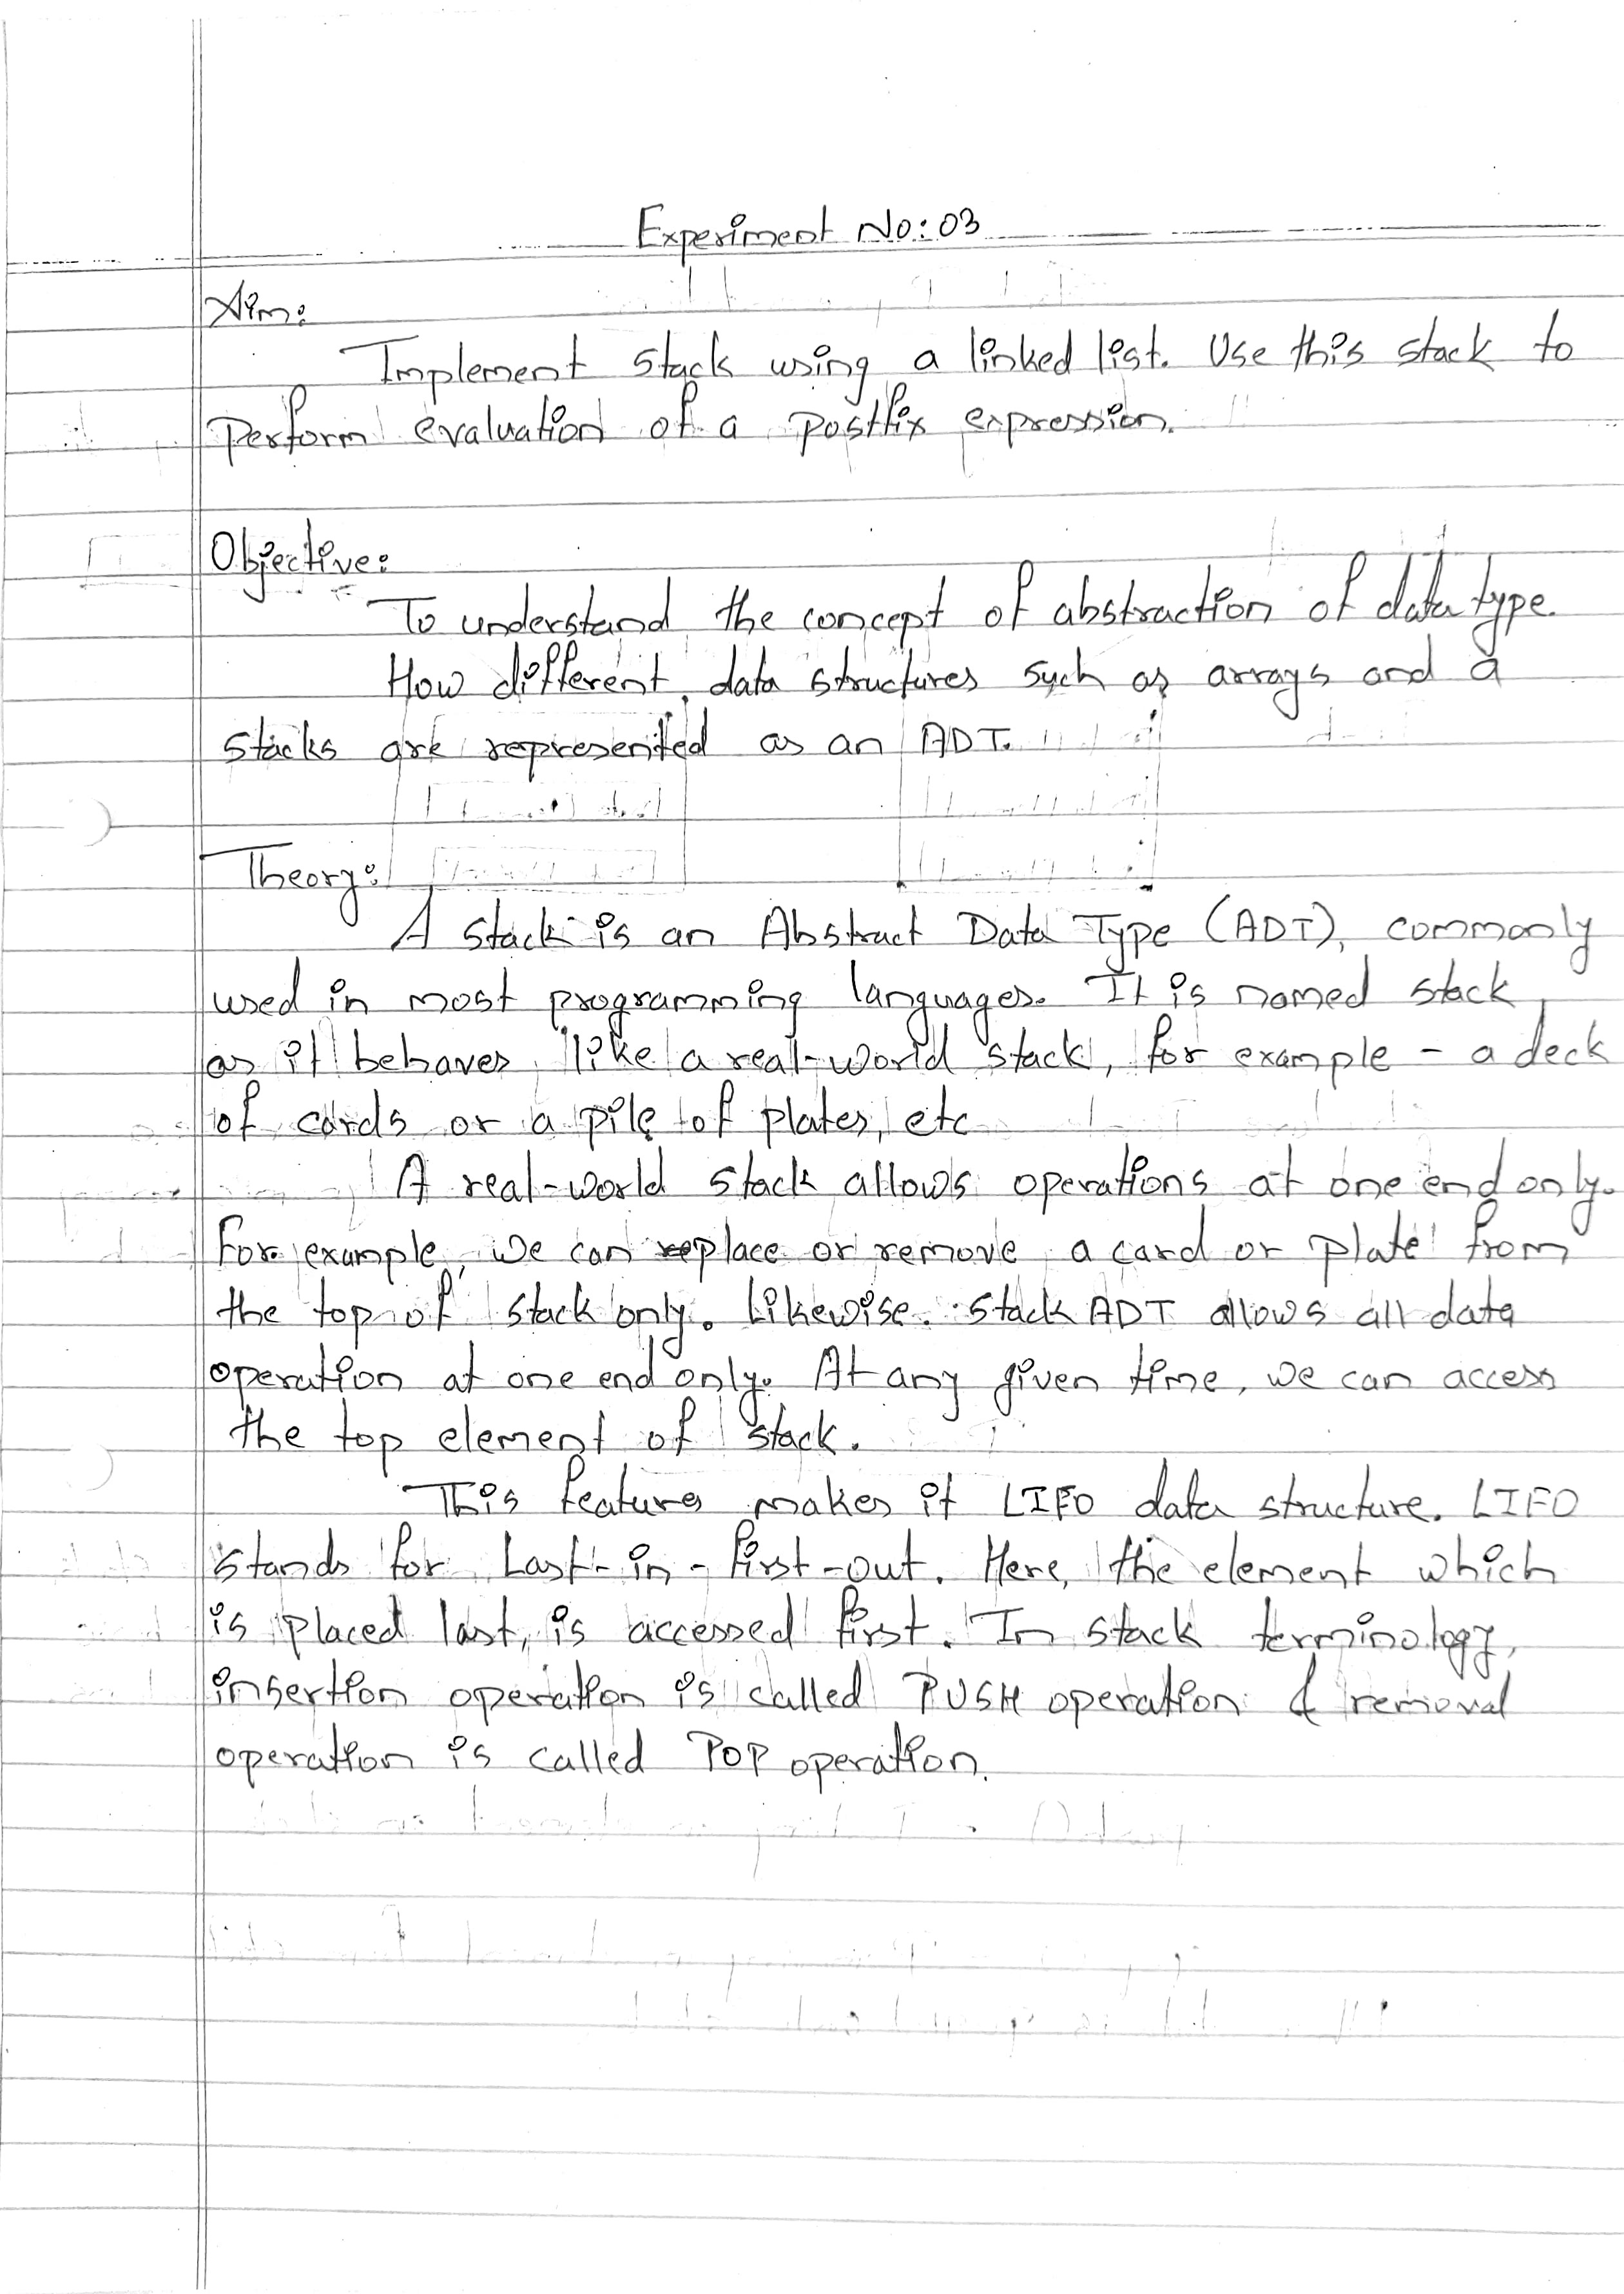 Experiment No: 03
Aim:
Implement stack using a linked list. Use this stack to
Perform evaluation of a postfix expression.
Objective:
To understand the concept of abstraction of data type.
How different data structures such as arrays and a
stacks are represented as an ADT.
Theory:
A stack is an Abstract Data Type (ADT), commonly
used in most programming languages. It is named stack
as it behaves like a real-world stack, for example - a deck
of cards or a pile of plates, etc
A real-world stack allows operations at one end only.
For example, we can replace or remove a card or plate from
the top of stack only. Likewise. Stack ADT allows all data
operation at one end only. At any given time, we can access
the top element of stack.
This feature makes it LIFO data structure. LIFO
stands for Last-in-first-out. Here, the element which
is placed last, is accessed first. In stack terminology,
insertion operation is called PUSH operation & removal
operation is called POP operation.